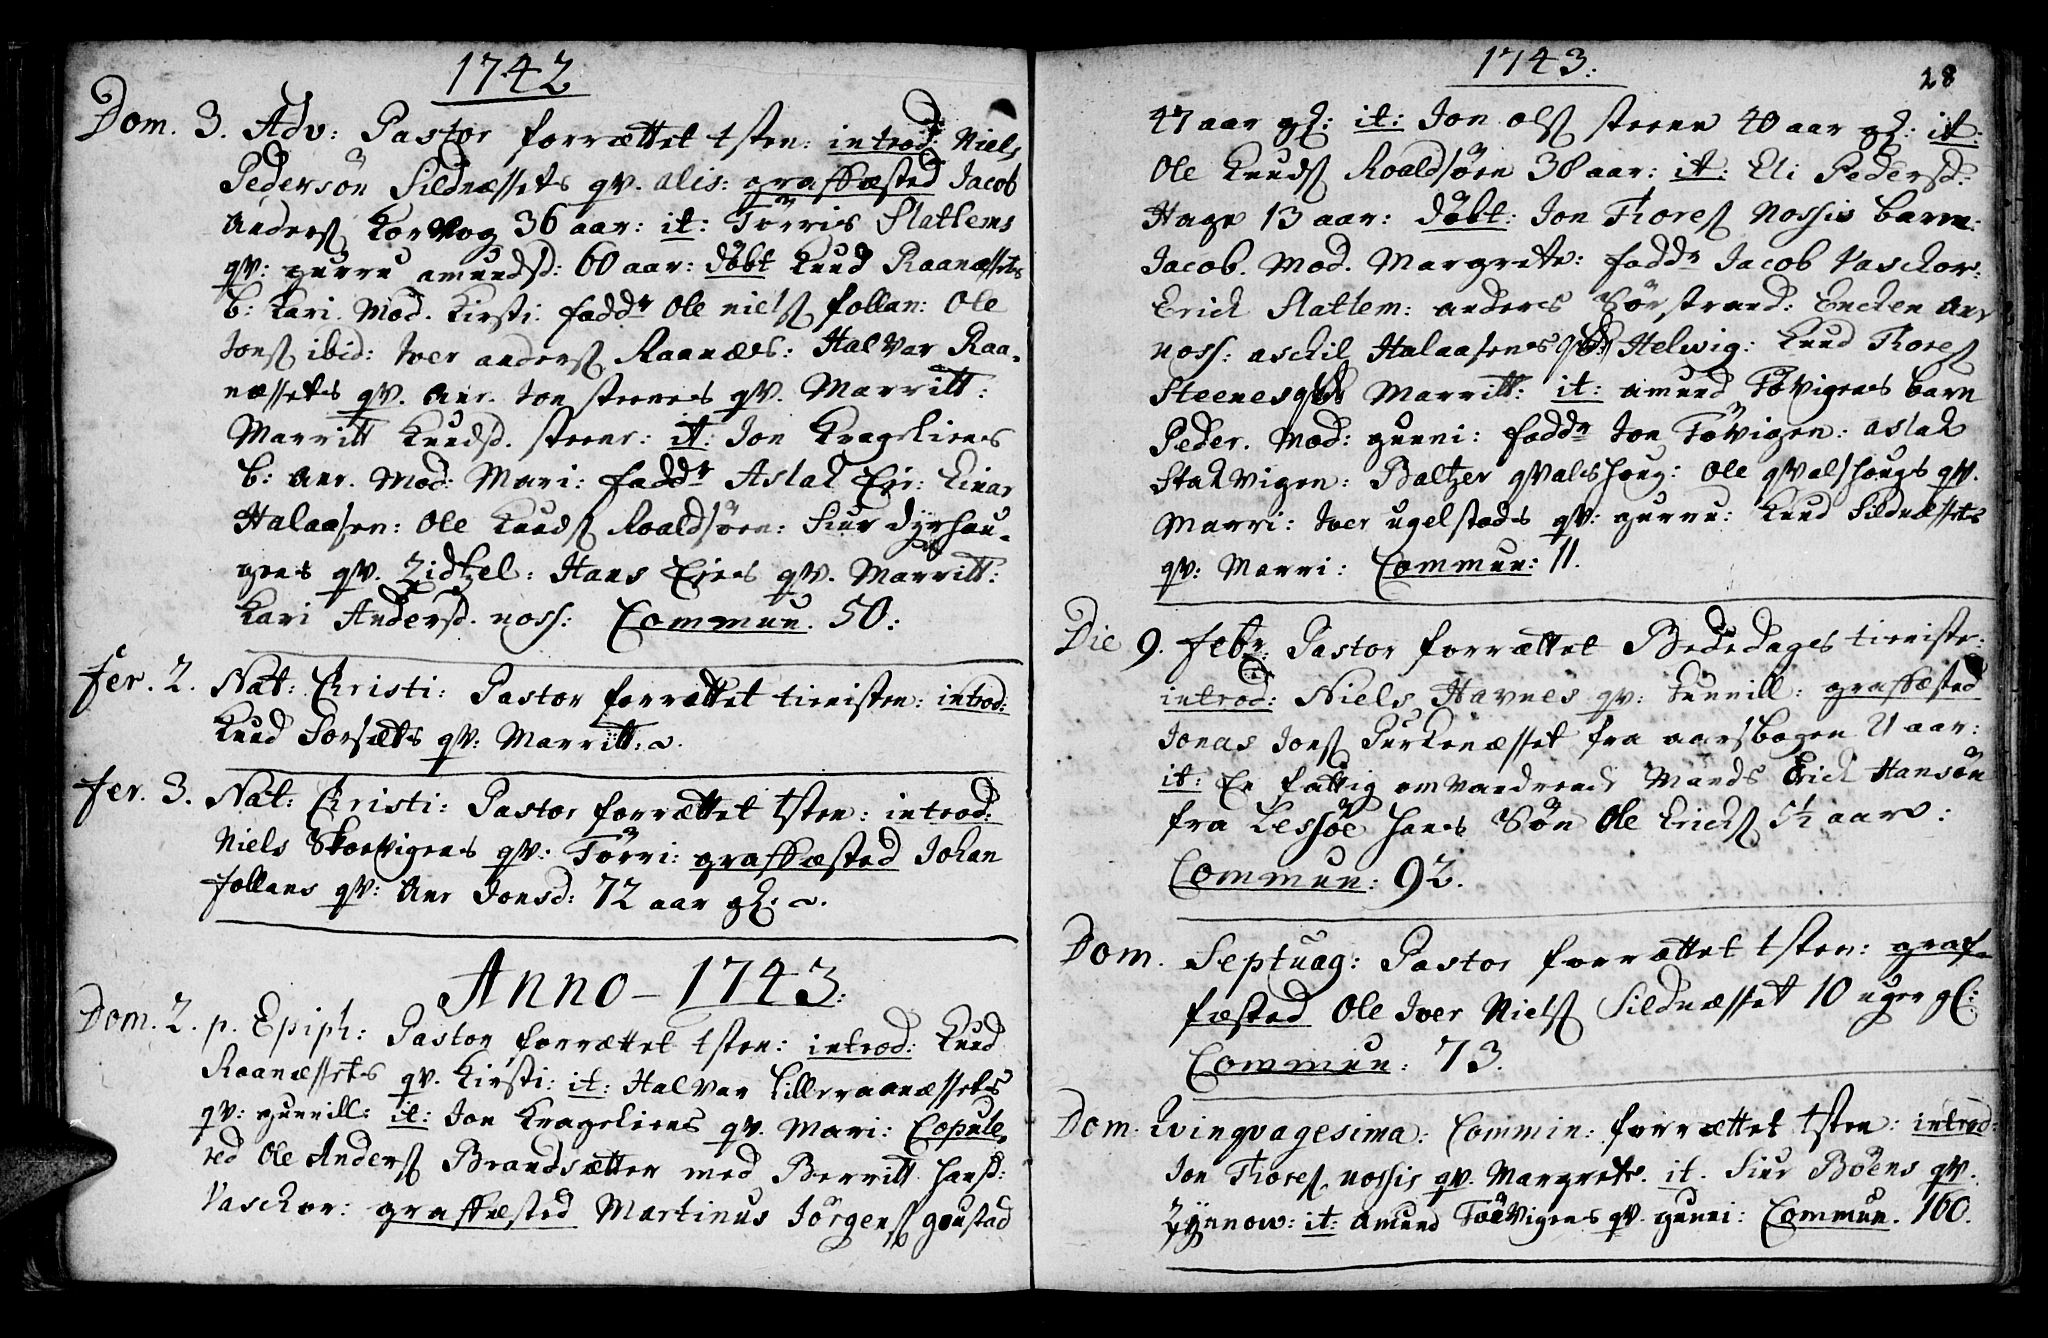 1742
Dom. 3. Adv: Pastor forrættet tsten: introd: Niels
Pedersön Sildnæssets qv. alis: graffæsted Jacob
Anders Korvog 36 aar: it: Törris Slatlems
qv: gurru amundsd: 60 aar: döbt Knud Raanæssets
b: Kari. Mod. Kirsti: fadd Ole niels follan: Ole
Jons ibid: Iver anders Raanæs: Halvar Raa-
næssets qv. Ane. Jon steenes qv. Marritt:
Marritt Knudsd. steene: it: Jon Krageliens
b: Ane. Mod: Mari: fadd Aslak Eje: Einar
Halaasen: Ole Knuds Roaldsöen: Siur dyrhau-
gens qv. Zidtzel: Hans Ejes qv. Marritt:
Kari Andersd. noss: Commun. 50:
fer. 2. Nat: Christi: Pastor forrættet tienisten: introd:
Knud Forsæts qv: Marritt:
fer. 3. Nat: Christi: Pastor forrættet tsten: introd:
Niels Skorvigens qv: Törri: graffæsted Johan
follans qv: Ane Jonsd: 72 aar gl:
Anno - 1743:
Dom. 2. p. Epiph: Pastor forrættet tsten: introd: Knud
Raanæssets qv. Kirsti: it: Halvar Lilleraanæssets
qv: gunnill: it: Jon Krageliens qv. Mari: Copule-
red Ole Anders Brandsætter med Berritt Hansd:
Vaschor: graffæsted Martinus Jörgens goustad
1743:
28
47 aar gl: it: Jon ols steene 40 aar gl: it:
Ole Knuds Roaldsöen 38 aar: it: Eli Pedersd:
Hage 13 aar: döbt: Jon Thores Nossis barn:
Jacob. Mod. Margrete: fadd Jacob Vaschor:
Erick Slatlem: anders Sörstrand: Encken Ane
noss: aschil Halaasenes Helwig: Knud Thores
Steenes Marritt: it: amund Tövigens barn
Peder. Mod: gunni: fadd Jon Tövigen: aslak
Stakvigen: Baltzer qvalshoug: Ole qvalshougs qv.
Marri: Iver ugelstads qv: gurru: Knud Sildnæssets
qv: Marri: Commun: 11.
Die 9. febr: Pastor forrættet Bededages tieniste:
introd: Niels Havnes qv: Gunnill: graffæsted
Jonas Jons Purkenæsset fra aarsbogen 21 aar:
it: En fattig omvandrend Mands Erick Hansön
fra Lessöe hans Sön Ole Ericks 5½ aar:
Commun: 92.
Dom. Septuag: Pastor forrættet tsten: graf-
fæsted Ole Iver Niels Sildnæsset 10 uger gl:
Commun: 73.
Dom. Qvinqvagesima: Commin: forrættet tsten: introd:
Jon Thores nossis qv. Margrete. it. Siur Böens qv.
Zynnow: it: amund Töevigens qv. gunni: Commun. 160.